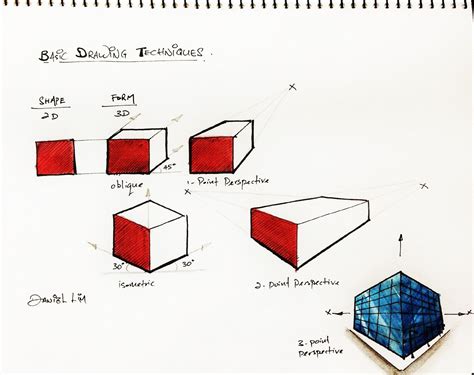 Basic Drawing Techniques.
SHAPE
2D
FORM
3D
x
45°
oblique
1-Point Perspective
x
x
30°
30°
isometric
2-Point Perspective
Daniel Lim
x
x
3-point
perspective